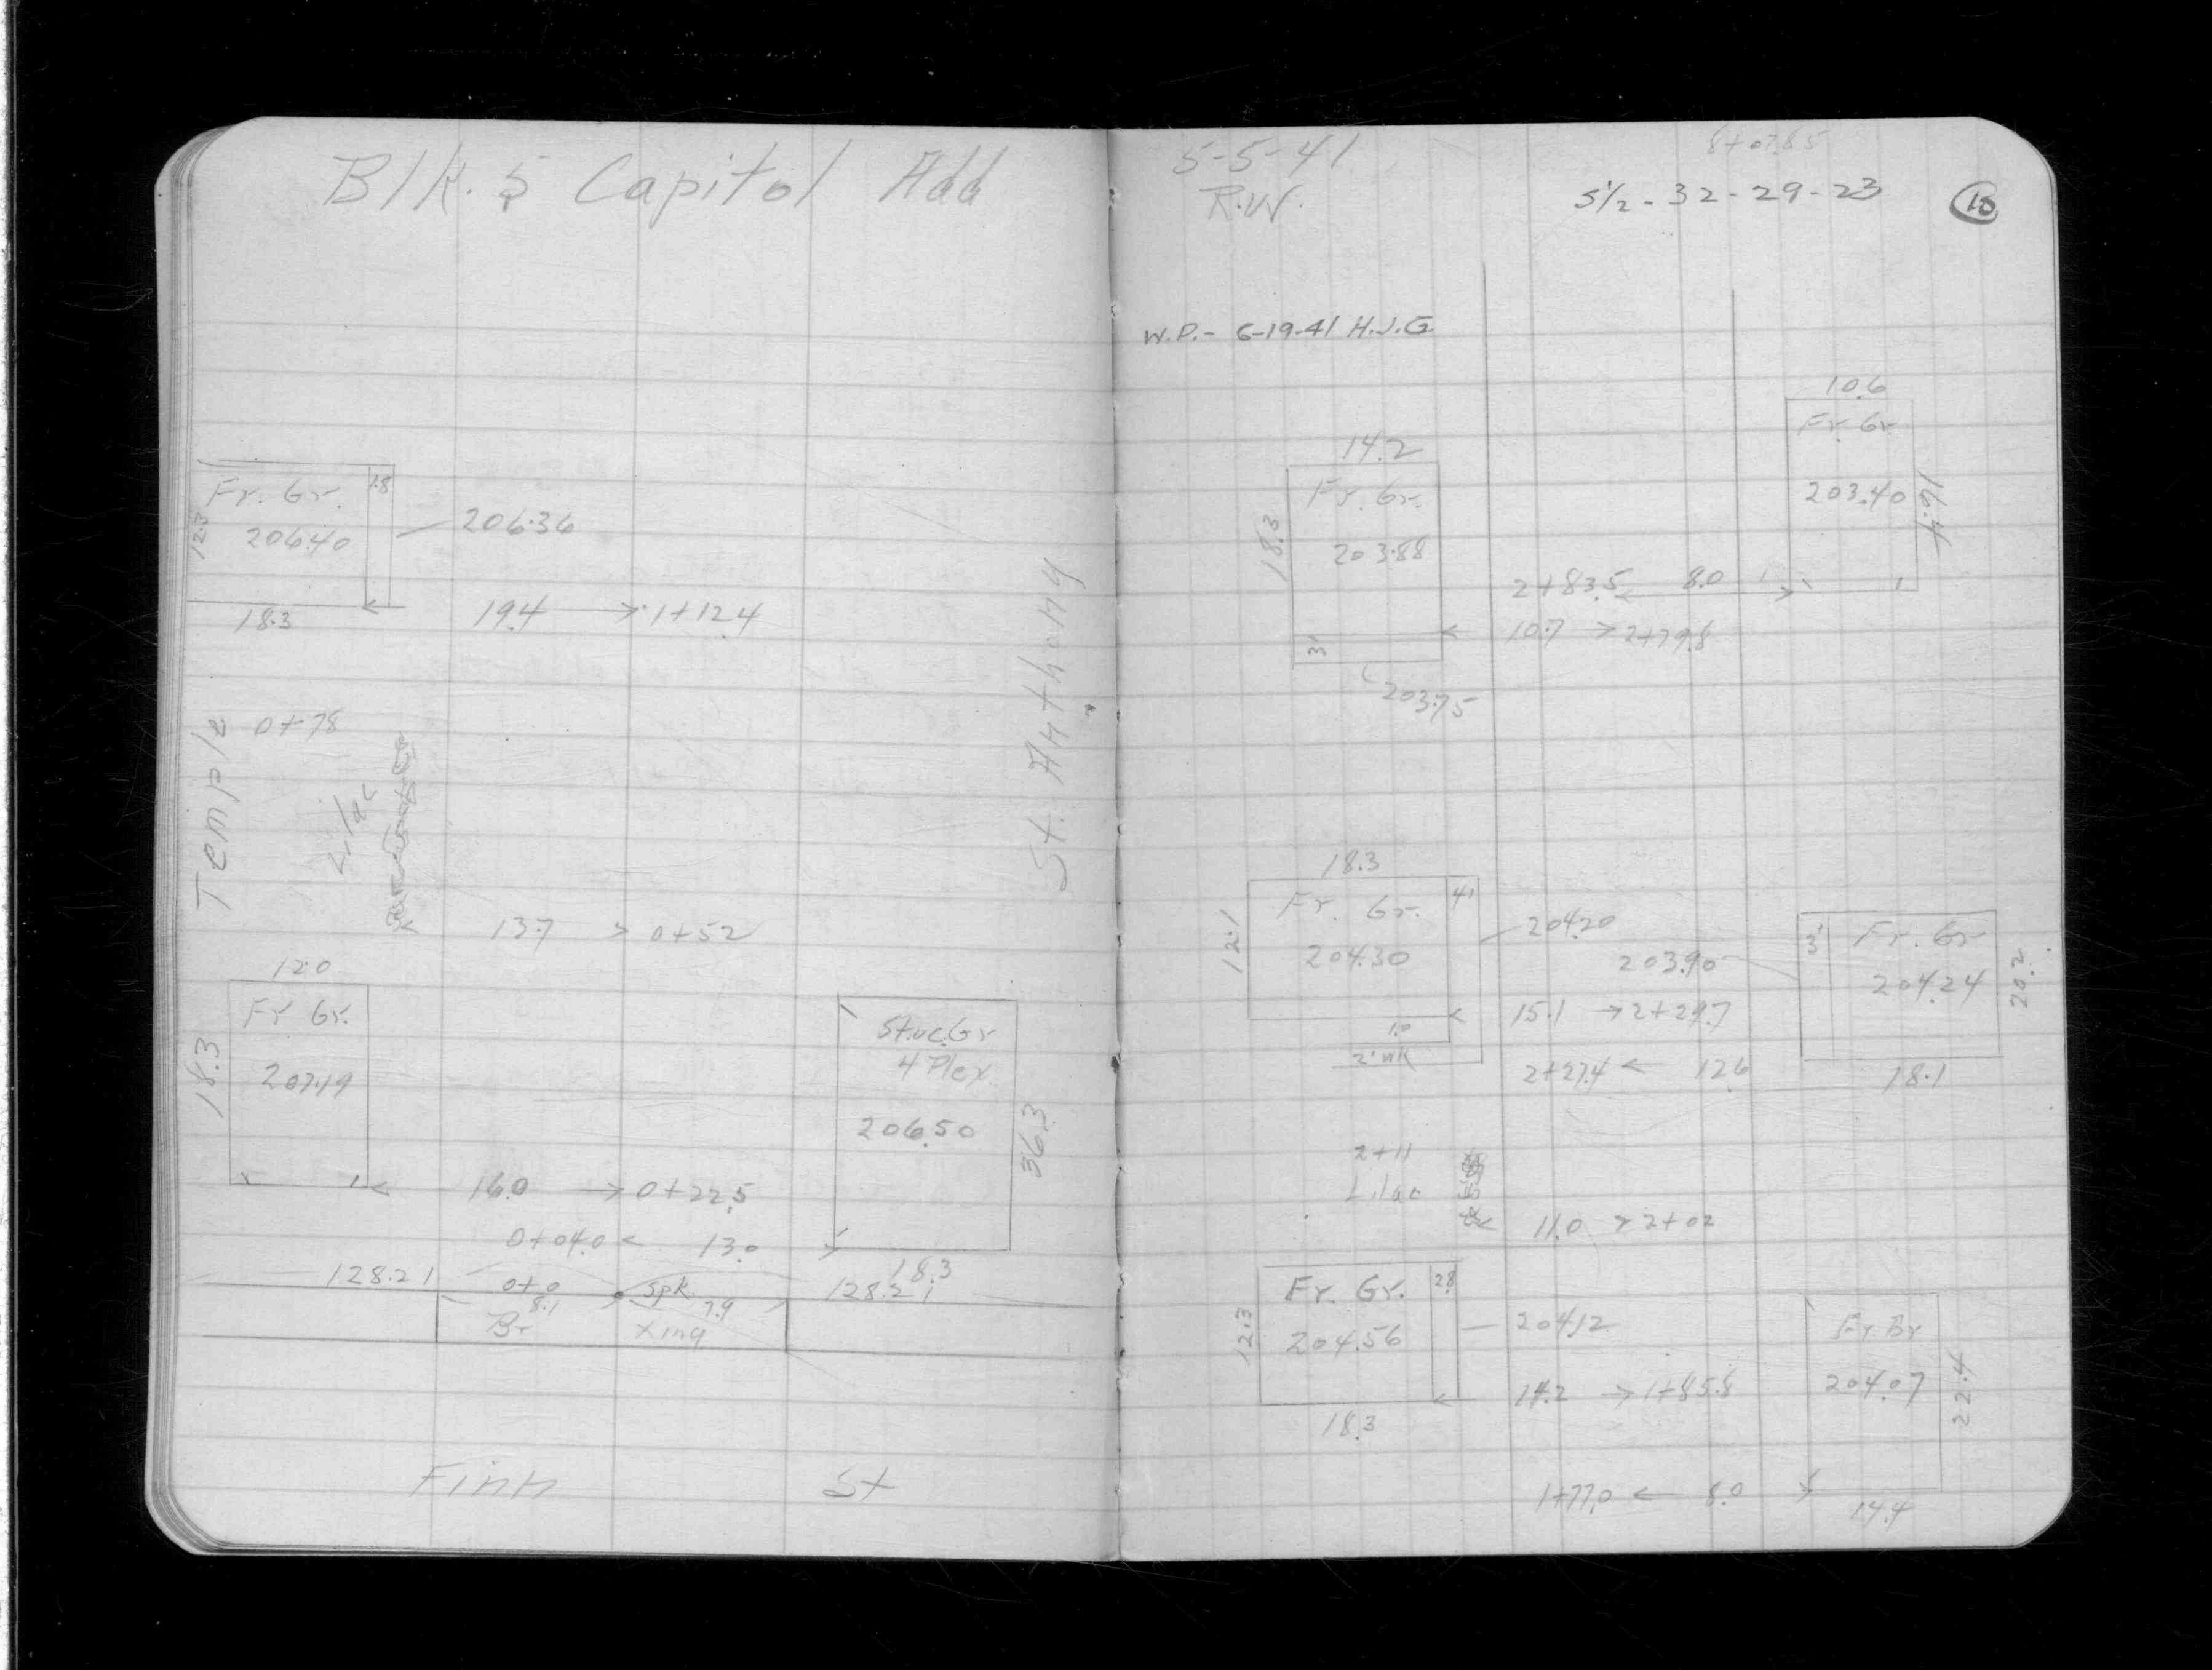 Blk. 5 Capitol Add
Fr. Gr.
1.8
206.40
12.3
206.36
18.3
19.4 → 1+12.4
St. Anthony
Temple
0+78
Lilac
13.7 > 0+52
12.0
Fr Gr.
207.19
18.3
Stuc. Gr
4 Plex
206.50
36.3
16.0 → 0+22.5
0+04.0 < 13.0
18.3
128.21
0+0
8.1
Spk.
7.9
128.21
Br
Xing
Finn St
5-5-41
R.W.
8+07.85
S½ - 32 - 29 - 23
10
W.P. - 6-19-41 H.J.G.
10.6
Fr. Gr
203.40
16.4
14.2
Fr. Gr.
203.88
18.3
2+83.5 8.0
10.7 > 2+79.8
3'
203.75
18.3
Fr. Gr.
4'
204.30
12.1
204.20
203.90
3'
Fr. Gr
204.24
20.2
15.1 → 2+29.7
1.0
2' wk
2+27.4 < 12.6
18.1
2+11
Lilac
11.0 > 2+02
Fr. Gr.
2.8
204.56
12.3
204.12
Fr Br
204.07
22.4
14.2 → 1+85.8
18.3
1+77.0 ← 8.0
14.4